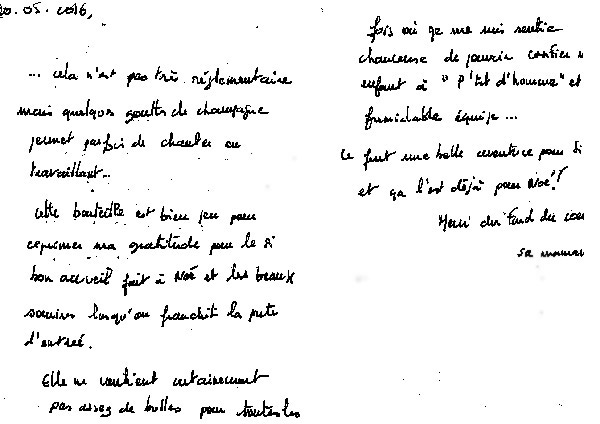 20.05.2016,
... cela n'est pas très réglementaire
mais quelques goutts de champagne
permet parfois de chanter en
travaillant...
Cette bouteille est bien peu pour
exprimer ma gratitude pour le si
bon accueil fait à Noé et les beaux
sourires lorsqu'on franchit la porte
d'entrée.
Elle ne contient certainement
pas assez de bulles pour toutes les
fois où je me suis sentie
chanceuse de pouvoir confier
enfant à "P'tit d'homme" et
formidable équipe...
Ce fut une belle aventure pour
et ça l'est déjà pour Noé!!
Merci du fond du
sa maman